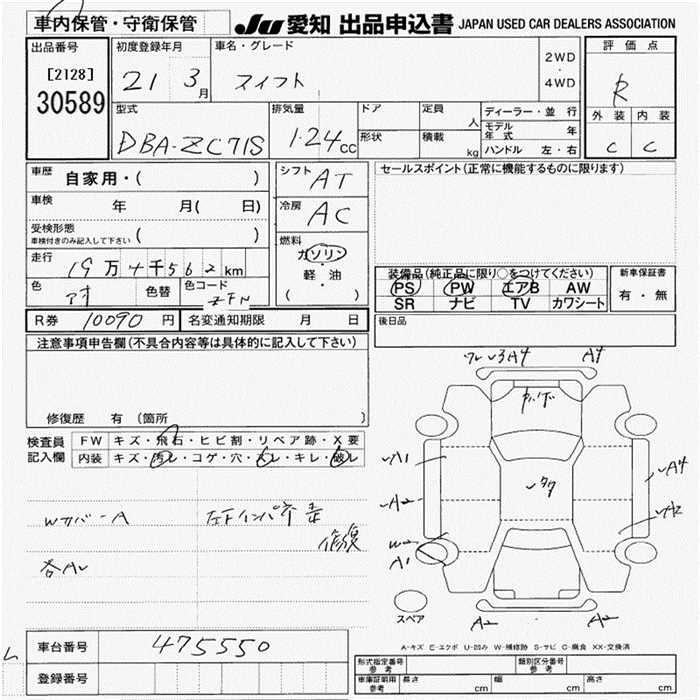 車内保管・守衛保管
JU 愛知 出品申込書 JAPAN USED CAR DEALERS ASSOCIATION
出品番号 初度登録年月 車名・グレード 評価点
[2128] 21 3月 スイフト 2WD・4WD R
30589
型式 排気量 ドア 定員 人 ディーラー・並行 外装 内装
DBA-ZC71S 1.24cc 形状 積載 kg モデル年式 年 C C
ハンドル 左・右
車歴 自家用・( ) シフト AT セールスポイント(正常に機能するものに限ります)
車検 年 月( 日) 冷房 AC
受検形態 ( )
車検付きのみ記入して下さい
燃料 ガソリン・軽・油 ( )
走行 19万4千562km
装備品(純正品に限り○をつけてください) 新車保証書
PS PW エアB AW 有・無
SR ナビ TV カワシート
色 色替 色コード ZFN
後日品
R券 10090円 名変通知期限 月 日
注意事項申告欄(不具合内容等は具体的に記入して下さい)
修復歴 有 (箇所 )
検査員記入欄 FW キズ・飛石・ヒビ割・リペア跡・X要
内装 キズ・汚レ・コゲ・穴・スレ・キレ・破レ
Wカバー A 左下インパネ 修復
各AU
A4 A4
A1 A4
A2
W2
A1
A2 A2
スペア
A-キズ E-エクボ U-凹み W-補修跡 S-サビ C-腐食 XX-交換済
車台番号 475550
登録番号
形式指定番号 参考 類別区分番号 参考
車庫証明用 参考 長さ cm 幅 cm 高さ cm